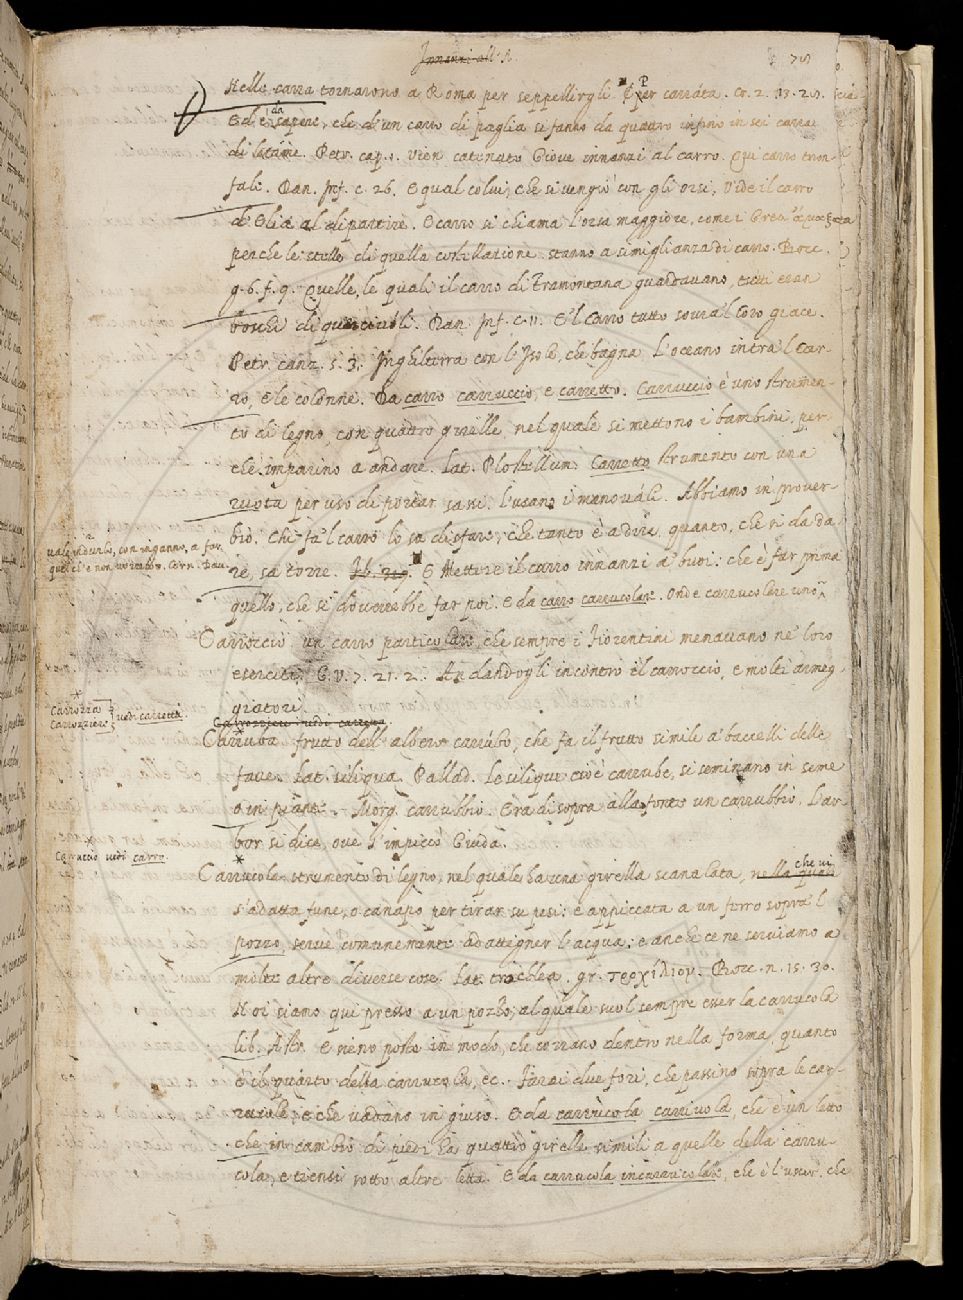 Innanzi all' A.
75
Nelle carra tornarono a Roma per seppellirgli Per carrata. Cr. 2. 13. 29.
Ed è da sapere, che d'un carro di paglia si fanno da quattro infino in sei carra
di letame. Petr. cap. 1. Vien catenato Giove innanzi al carro. Qui carro trion-
fale. Dan. Inf. c. 26. E qual colui, che si vengiò con gli orsi, Vide il carro
d'Elia al dipartire. E carro si chiama l'orsa maggiore, come i Greci
perche le stelle di quella costellazione stanno a simiglianza di carro. Bocc.
g. 6. f. 9. Quelle, le quali il carro di Tramontana guardavano, tutte eran
boschi di quercivoli. Dan. Inf. c. 11. E'l Carro tutto sovra'l Coro giace.
Petr. canz. 5. 3. Inghilterra con l'Isole, che bagna L'oceano intra'l Car-
ro, e le colonne. Da carro carruccio, e carretto. Carruccio è uno strumen-
to di legno, con quattro girelle, nel quale si mettono i bambini, per-
che imparino a andare. Lat. Plostellum. Carretto strumento con una
ruota per uso di portar sassi. l'usano i manovali. Abbiamo in prover-
bio. Chi fa'l carro lo sa disfare, che tanto è a dire, quanto, che si da da-
re, sa torre. E Mettere il carro innanzi a' buoi: che è far prima
quello, che si dovrebbe far poi. E da carro carrucolare. Onde carrucolare uno
vale indurlo, con inganno, a far
quel ch'e' non vorrebbe. Corn. Dav.
Carroccio un carro particolare, che sempre i Fiorentini menavano ne' loro
eserciti. G. V. 7. 21. 2. Andandogli incontro il carroccio, e molti armeg-
giatori.
Carrozza
Carrozziere vedi carretta.
Carrozziere vedi carretta.
Carruba frutto dell' albero carrubo, che fa il frutto simile a' baccelli delle
fave. Lat. siliqua. Pallad. Le silique cioè carrube, si seminano in seme
e in piante. Morg. carrubbio. Era di sopra alla fonte un carrubbio. L'ar-
bor si dice, ove s'impiccò Giuda.
Carruccio vedi carro.
Carrucola strumento di legno, nel quale ha una girella scanalata, nella quale che vi
s'adatta fune, o canapo per tirar su pesi: e appiccata a un ferro sopra'l
pozzo serve comunemente ad attigner l'acqua: e anche ce ne serviamo a
molte altre diverse cose. Lat. trochlea. gr. τροχίλιον. Bocc. n. 15. 30.
Noi siamo qui presso a un pozzo, al quale suol sempre esser la carrucola
lib. Astr. E sieno poste in modo, che corrano dentro nella forma, quanto
è il quarto della carrucola, ec. Farai due fori, che passino sopra le car-
rucole, e che vadano in giuso. E da carrucola carriuola, che è un letto
che in cambio di piedi ha quattro girelle simili a quelle della carru-
cola, e tiensi sotto altre letta. E da carrucola incarrucolare, che è l'uscir, che